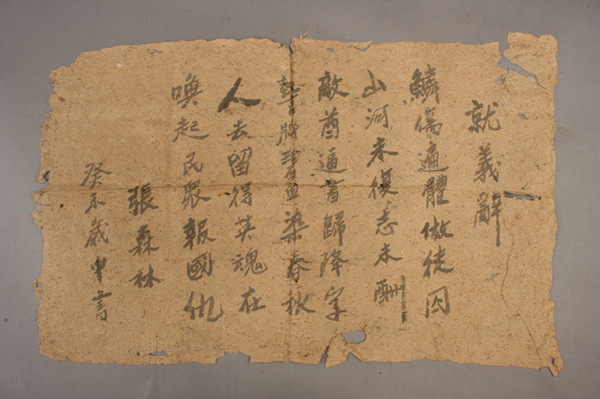 就義辭
鱗傷遍體做徒囚
山河未復志未酬
敵酋逼書歸降字
誓將碧血染春秋
人去留得英魂在
喚起民眾報國仇
張森林
癸未歲書